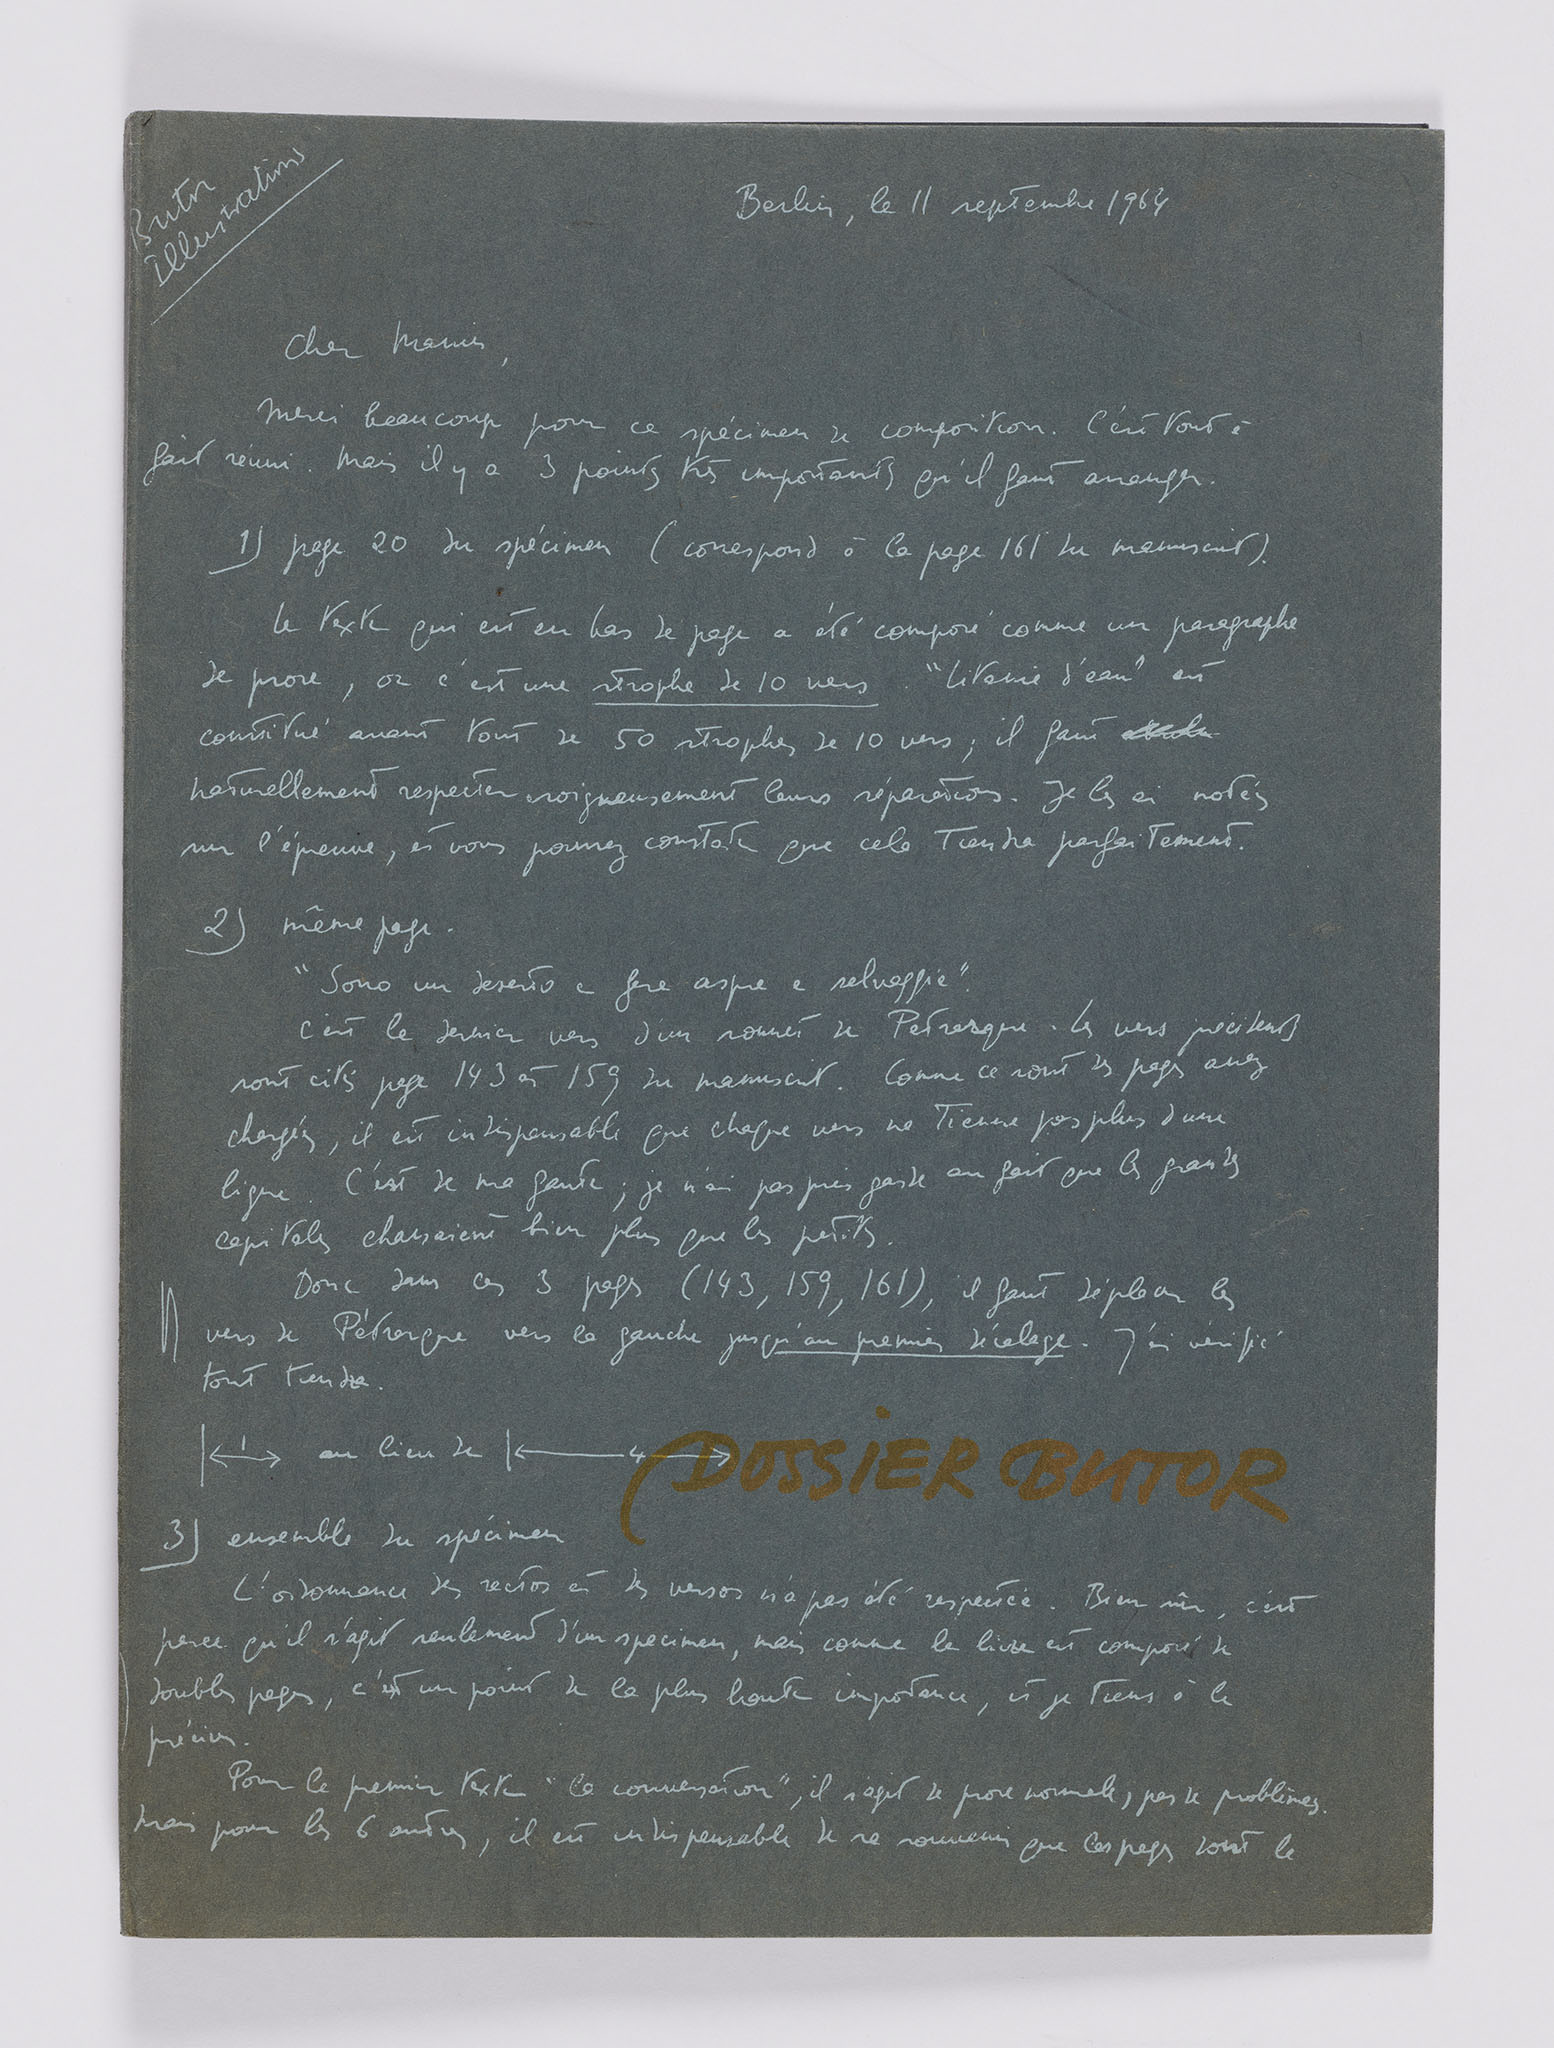 Butor
Illustrations
Berlin, le 11 septembre 1964
Cher Massin,
Merci beaucoup pour ce spécimen de composition. C'est tout à
fait réussi. Mais il y a 3 points très importants qu'il faut arranger.
1) page 20 du spécimen (correspond à la page 161 du manuscrit).
Le texte qui est en bas de page a été composé comme un paragraphe
de prose, or c'est une strophe de 10 vers. "Litanie d'eau" est
constitué avant tout de 50 strophes de 10 vers; il faut
naturellement respecter soigneusement leurs séparations. Je les ai notées
sur l'épreuve, et vous pourrez constater que cela tiendra parfaitement.
2) même page.
"Sono un deserto e fere aspre e selvaggie".
C'est le dernier vers d'un sonnet de Pétrarque. Les vers précédents
sont cités page 143 et 159 du manuscrit. Comme ce sont des pages assez
chargées, il est indispensable que chaque vers ne tienne pas plus d'une
ligne. C'est de ma faute; je n'ai pas pris garde au fait que les grandes
capitales chassaient bien plus que les petites.
Donc dans ces 3 pages (143, 159, 161), il faut déplacer les
vers de Pétrarque vers la gauche jusqu'au premier décalage. J'ai vérifié
tout tiendra.
1 au lieu de 4
DOSSIER BUTOR
3) ensemble du spécimen
L'ordonnance des rectos et des versos n'a pas été respectée. Bien sûr, c'est
parce qu'il s'agit seulement d'un specimen, mais comme le livre est composé de
doubles pages, c'est un point de la plus haute importance, et je tiens à le
préciser.
Pour le premier texte "la conversation", il s'agit de prose normale, pas de problèmes.
Mais pour les 6 autres, il est indispensable de se souvenir que les pages sont le